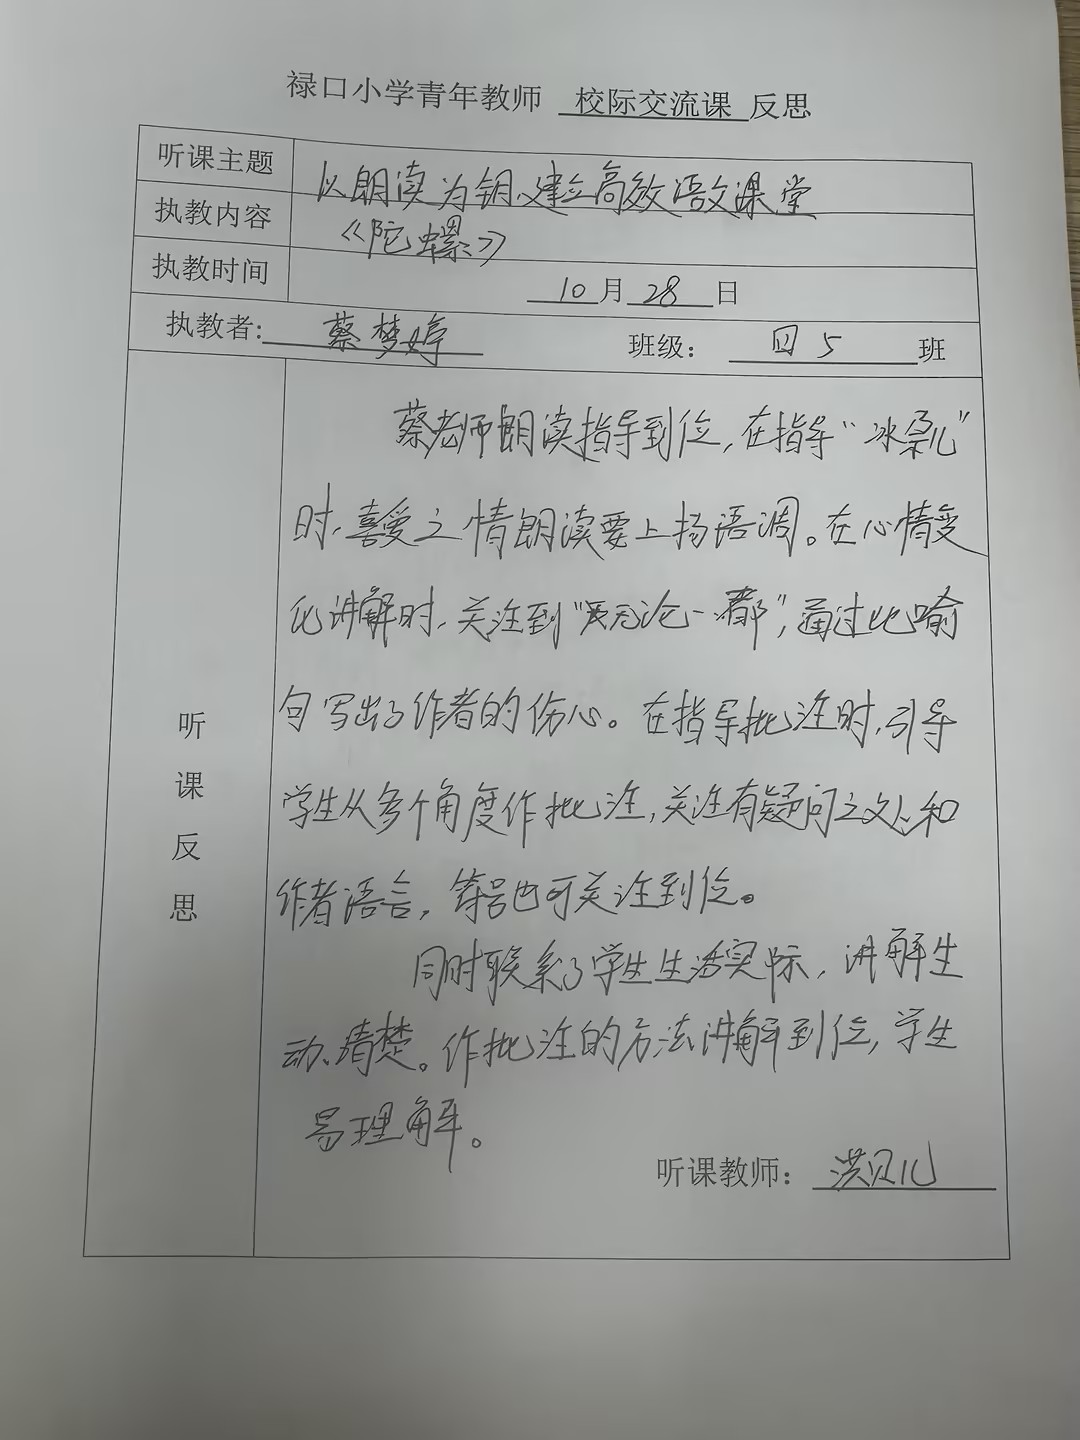 禄口小学青年教师 校际交流课 反思
听课主题 以朗读为钥,建立高效语文课堂
执教内容 《陀螺》
执教时间 10月28日
执教者: 蔡梦婷 班级: 四5班
听课反思
蔡老师朗读指导到位,在指导“冰朵儿”
时,喜爱之情朗读要上扬语调。在心情变
化讲解时,关注到“无论…都”,通过比喻
句写出了作者的伤心。在指导批注时,引导
学生从多个角度作批注,关注有疑问之处和
作者语言,符号也可关注到位。
同时联系了学生生活实际,讲解生
动、清楚。作批注的方法讲解到位,学生
易理解。
听课教师: 洪贝儿